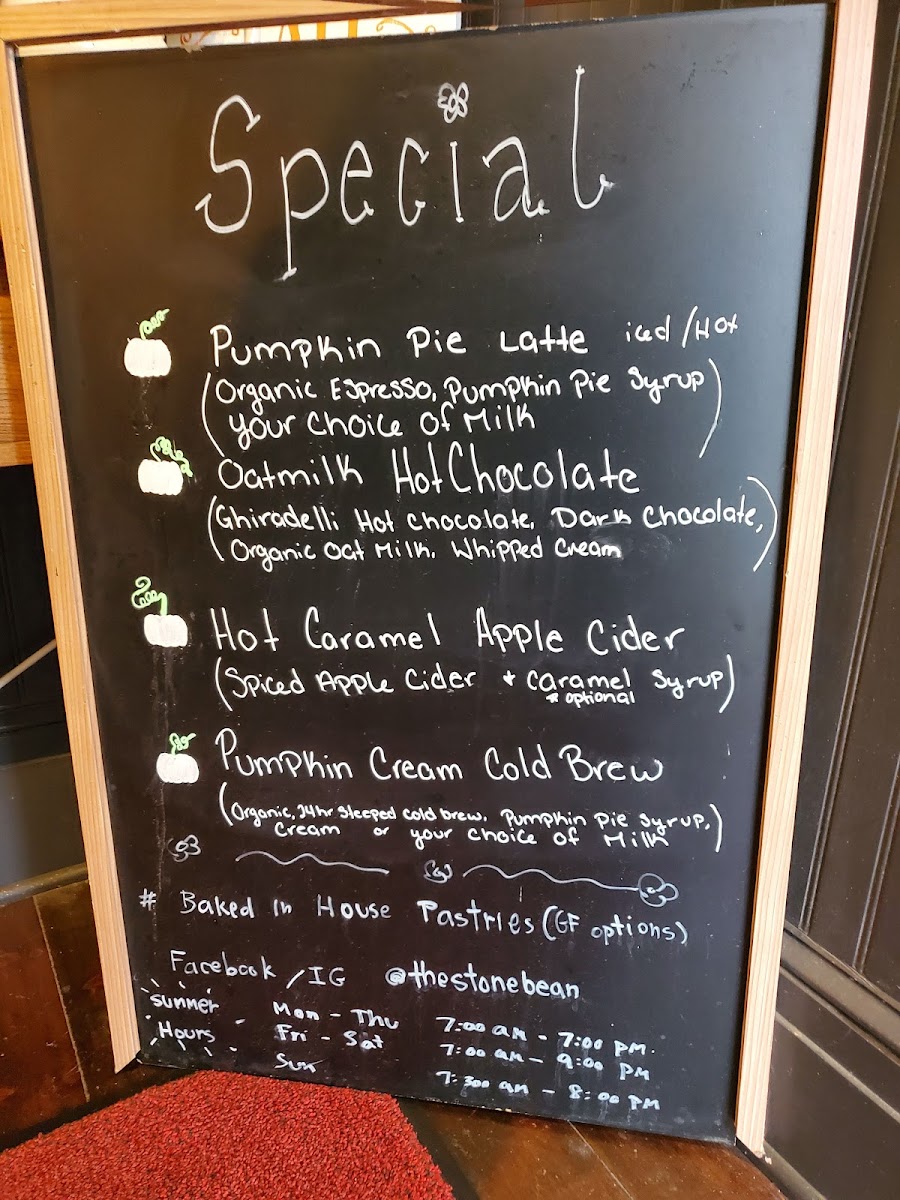 Special
Pumpkin Pie Latte iced/Hot
(Organic Espresso, Pumpkin Pie Syrup
your choice of Milk)
Oatmilk Hot Chocolate
(Ghiradelli Hot chocolate, Dark Chocolate,
Organic Oat Milk, Whipped Cream)
Hot Caramel Apple Cider
(Spiced Apple Cider + Caramel Syrup)
* optional
Pumpkin Cream Cold Brew
(Organic, 24hr steeped cold brew, Pumpkin Pie Syrup,
Cream or your choice of Milk)
# Baked in House Pastries (GF options)
Facebook / IG @thestonebean
Summer Mon - Thu 7:00 am - 7:00 pm.
Hours Fri - Sat 7:00 am - 9:00 pm
Sun 7:300 am - 8:00 pm